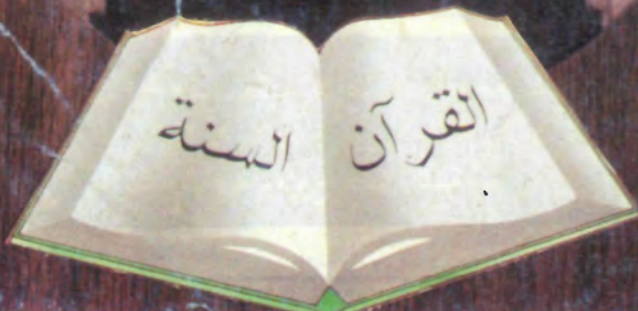 القرآن
السنة